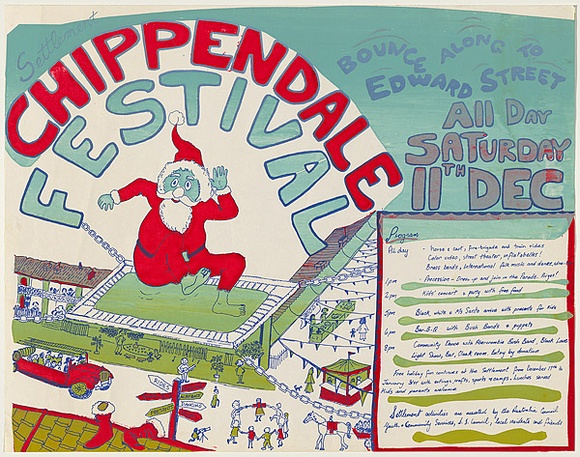 Settlement
CHIPPENDALE
FESTIVAL
BOUNCE ALONG TO
EDWARD STREET
All DAY
SATURDAY
11TH DEC
Program
All day - Horse & cart, fire-brigade and train rides
Color video, street theater, inflatables!
Brass bands, International folk music and dances,
1pm - Procession - Dress-up and join in the Parade.
2pm - Kids' concert & party with free food
5pm Black, white & Ms Santa arrive with presents for kids
6pm - Bar-B-Q with Bush Bands & puppets
8pm Community Dance with Abercrombie Bush Band, Black Lace
Light Show, Bar, Cloak room. Entry by donation
Free holiday fun continues at the Settlement from December 17th to
January 21st with outings, crafts, sports & camps. Lunches served
Kids and parents welcome
Settlement activities are assisted by the Australia Council
Youth & Community Services, S.S. Council, local residents and friends
RIDES
DANCING